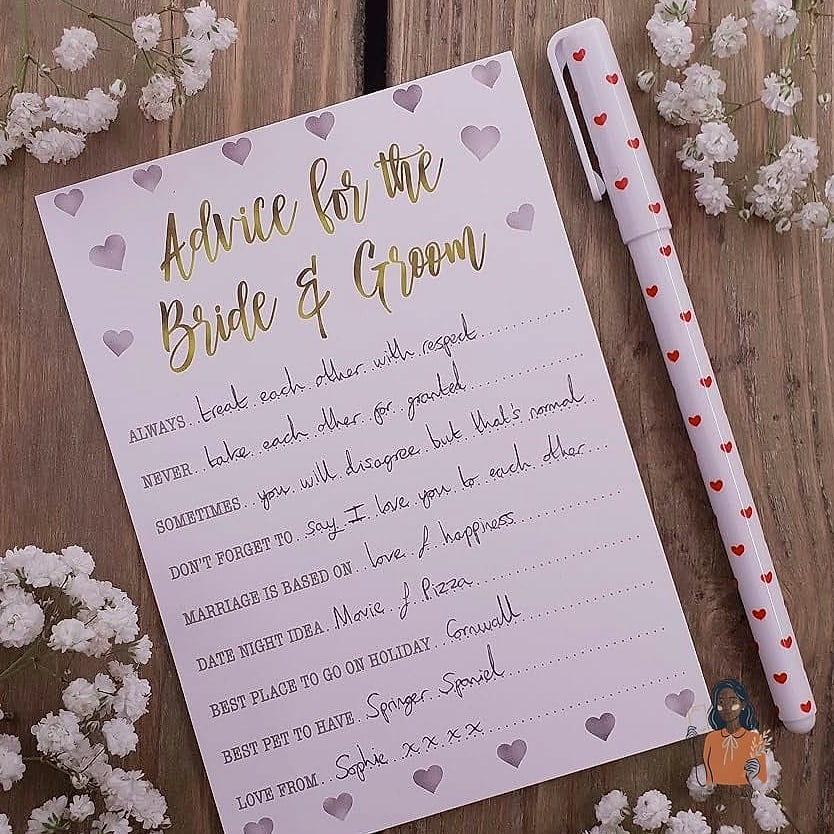 Advice for the
Bride & Groom
ALWAYS treat each other with respect
NEVER take each other for granted
SOMETIMES you will disagree but that's normal
DON'T FORGET TO say I love you to each other
MARRIAGE IS BASED ON love & happiness
DATE NIGHT IDEA Movie & Pizza
BEST PLACE TO GO ON HOLIDAY Cornwall
BEST PET TO HAVE Springer Spaniel
LOVE FROM Sophie x x x x